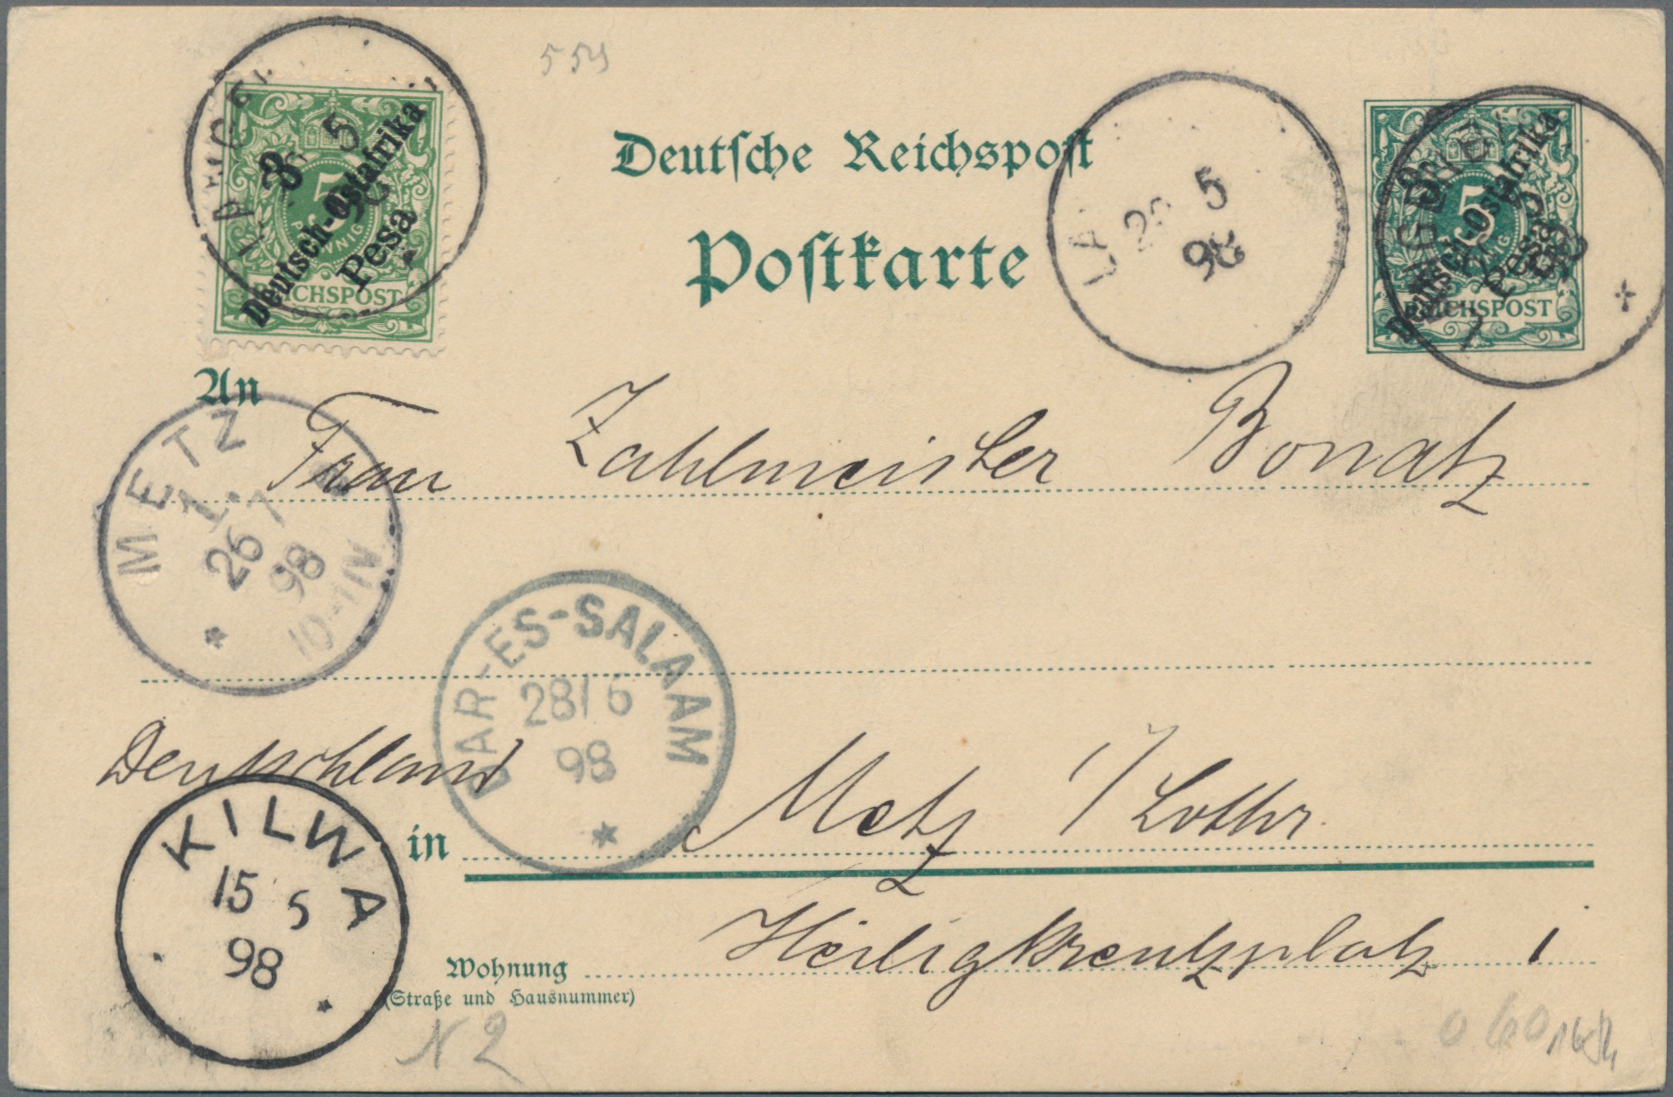 554
Deutsche Reichspost
Postkarte
3
5
Deutsch-Ostafrika
Pesa
REICHSPOST
5
98
LA
5
98
3
5
Deutsch-Ostafrika
Pesa
REICHSPOST
An
Frau Zahlmeister Bonatz
METZ
1.
26 7
98
10-11V
DAR-ES-SALAAM
28/6
98
Deutschland
in Metz i/Lothr.
KILWA
15 5
98
Heiligkreutzplatz 1
Wohnung
(Straße und Hausnummer)
N 2